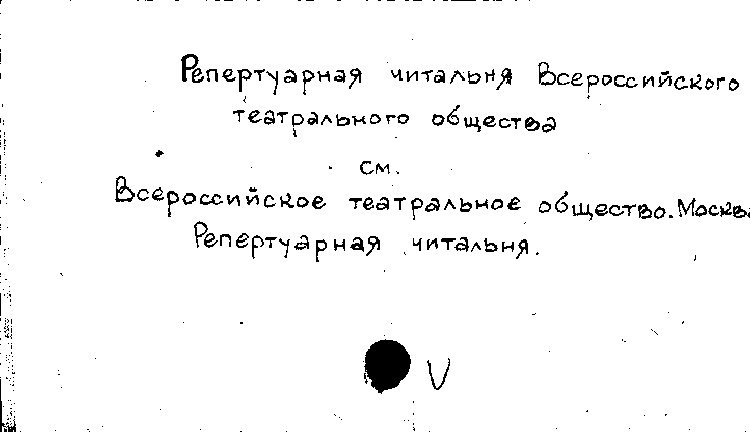 Репертуарная читальня Всероссийского
театрального общества
см.
Всероссийское театральное общество. Москва
Репертуарная читальня.
V